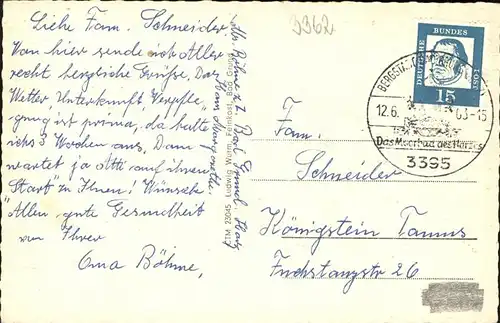 3362
Liebe Fam. Schneider
Von hier sende ich Allen
recht herzliche Grüsse. Das
Wetter, Unterkunft Verpfle-
gung ist prima, da halte
ich's 3 Wochen aus. Dann
wartet ja Atti auf ihren
"Start" zu Ihnen! Wünsche
Allen, gute Gesundheit
von Ihrer
Oma Böhme,
Bad Grund Harz
Haus Margarethe
CTM 23045 Ludwig Wurm, Feinkost, Bad Grund
DEUTSCHE BUNDESPOST
15
BERGSTADT
12.6. 63-15
Das Moorbad des Harzes
3395
Fam.
Schneider
Königstein Taunus
Fuchstanzstr 26